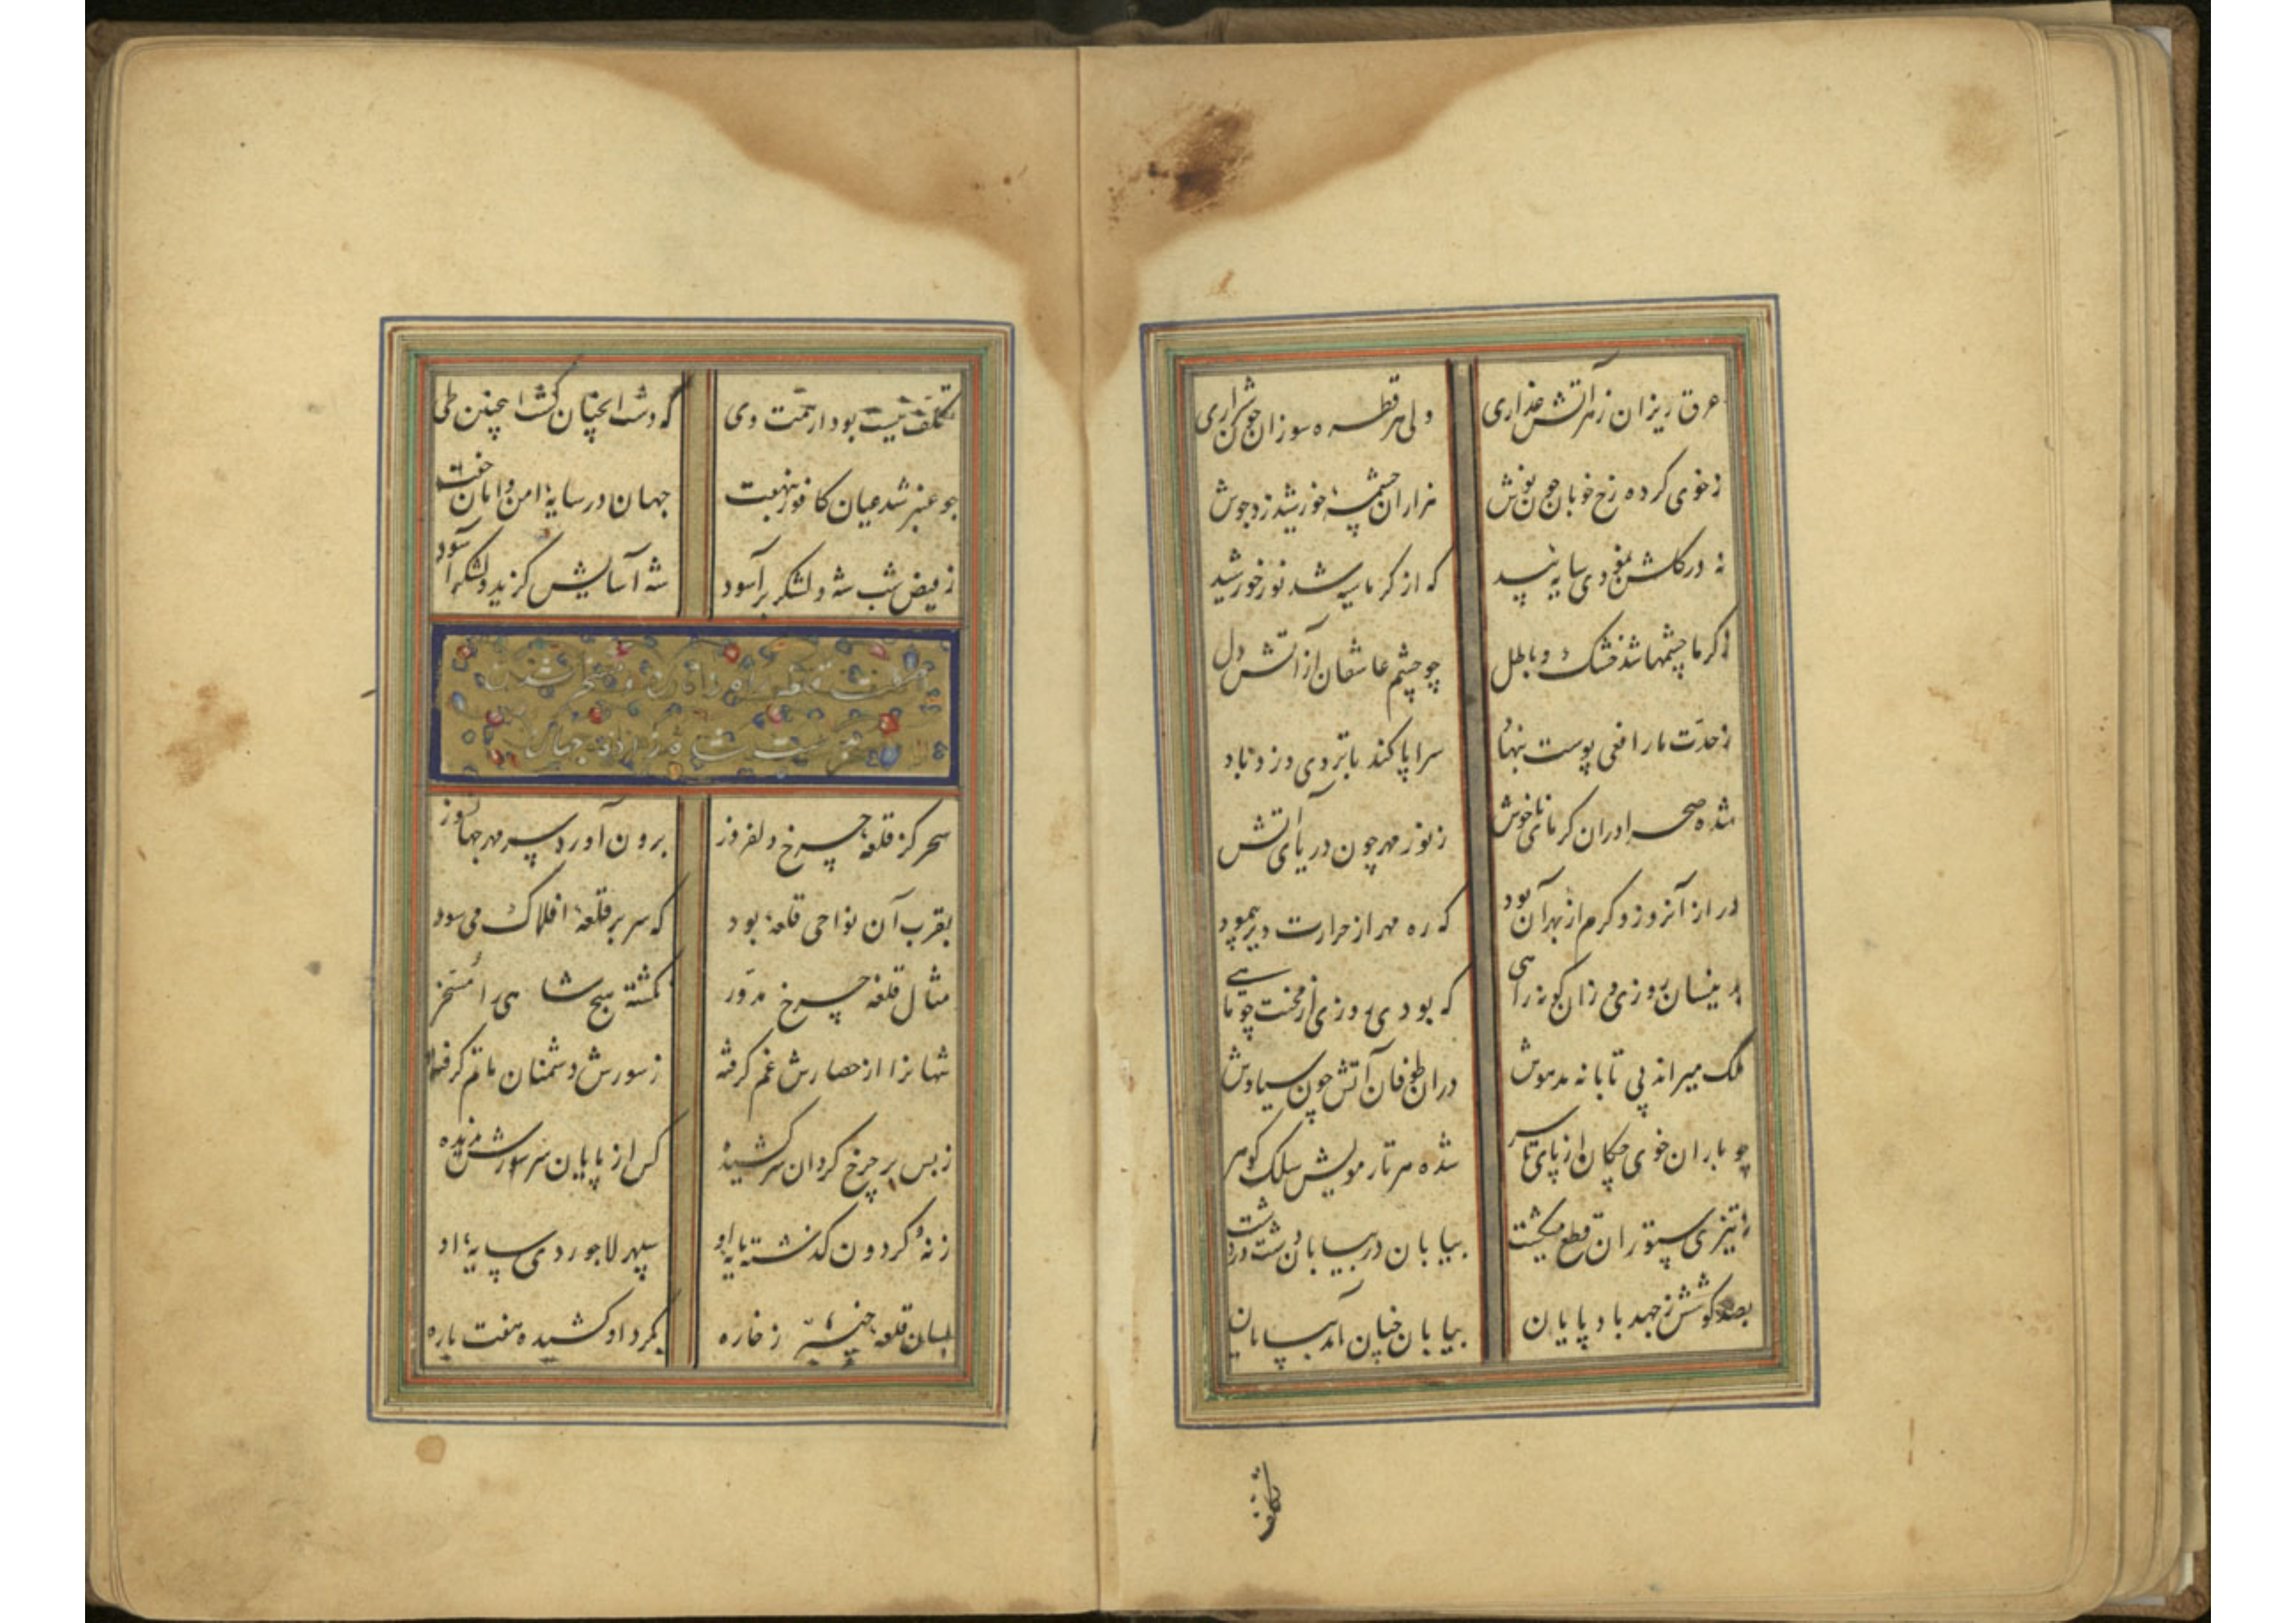 عرق ریزان ز هر آتش عذاری ولی هر قطره سوزان چون شراری
ز خوی کرده رخ خوبان چون نوش هزاران چشمهٔ خورشید زد جوش
نه در گلشن نمودی سایهٔ بید که از گرما سیه شد نور خورشید
ز گرما چشمها شد خشک و باطل چو چشم عاشقان از آتش دل
ز حدّت مار افعی پوست سراپا کند تا بروی وزد باد
شده صحرا دران گرمای ناخوش ز نور مهر چون دریای آتش
دراز آنروز و گرم از بهر آن بود که ره مهر از حرارت دیر پیمود
بدینسان روزی و زان گونه راهی که بودی روزی از محنت چو ماهی
ملک میراند بی تابانه مدهوش دران طوفان آتش چون سیاوش
چو باران خوی چکان از پای تا سر شده هر تار مویش سلک گوهر
ز تیزی ستوران قطع میگشت بیابان در بیابان دشت در دشت
بصد کوشش ز جهد باد پایان بیابان چنان آمد بپایان
تکلف
تکلف نیست بود از همت وی که دشت آنچنان گشت اینچنین طی
چو عنبر شد عیان کافور بنهفت جهان در سایهٔ امن و امان خفت
ز فیض شب شه و لشکر برآسود شه آسایش گزید و لشکر آسود
سحر کز قلعهٔ چرخ دلفروز برون آورد سر مهر جهانسوز
بقرب آن نواحی قلعهٔ بود که سر بر قلعهٔ افلاک می سود
مثال قلعهٔ چرخ مدوّر نگشته هیچ شاهی را مسخّر
شهانرا از حصارش غم گرفته ز سورش دشمنان ماتم گرفته
ز بس بر چرخ گردان سر کشیده کس از پایان سر سورش ندیده
ز نه گردون گذشته پایهٔ او سپهر لاجوردی سایهٔ او
بسان قلعهٔ ز خاره بگرد او کشیده هفت باره